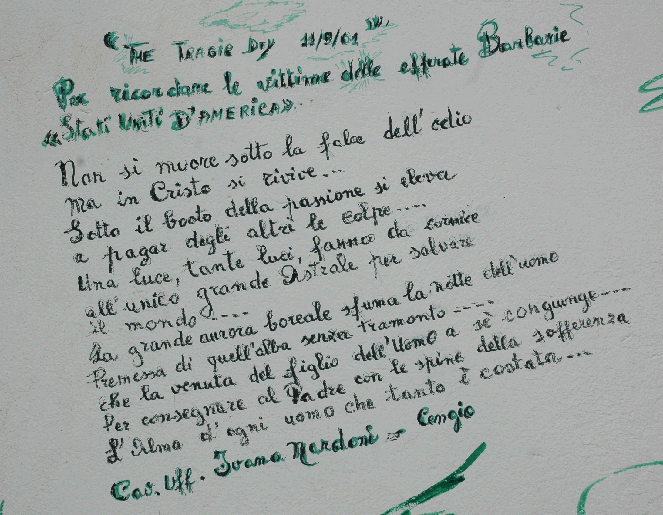 "THE TRAGIE DAY 11/9/01".
Per ricordare le vittime delle efferate Barbarie
«Stati Uniti D'AMERICA»..
Non si muore sotto la falce dell'odio
Ma in Cristo si rivive...
Sotto il bocto della passione si eleva
a pagar degli altri le colpe....
Una luce, tante luci, fanno da cornice
all'unico grande Astrale per salvare
il mondo.....
La grande aurora boreale sfuma la notte dell'uomo
Premessa di quell'alba senza tramonto.....
che la venuta del figlio dell'Uomo a sè congiunge....
Per consegnare al Padre con le spine della sofferenza
L'Alma d'ogni uomo che tanto è costata...
Cav. Uff. Ivana Nardoni - Cengio